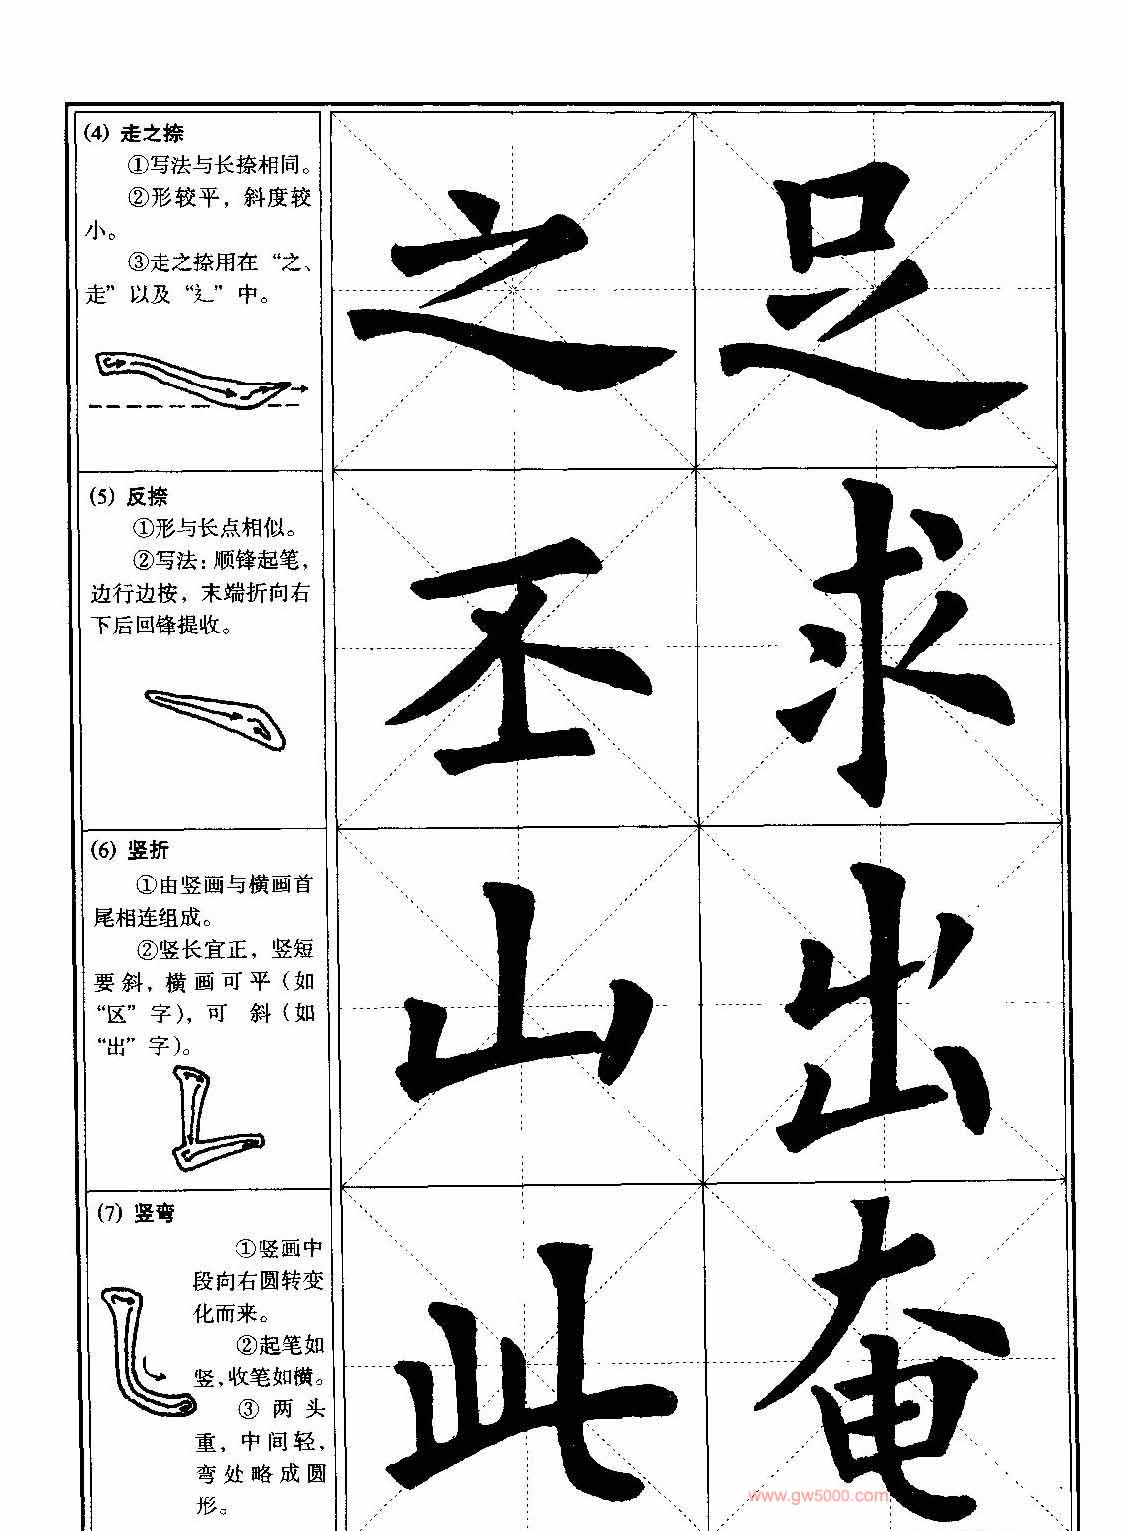 (4) 走之捺
①写法与长捺相同。
②形较平，斜度较
小。
③走之捺用在“之、
走”以及“辶”中。
之 足
(5) 反捺
①形与长点相似。
②写法：顺锋起笔，
边行边按，末端折向右
下后回锋提收。
丕 求
(6) 竖折
①由竖画与横画首
尾相连组成。
②竖长宜正，竖短
要斜，横画可平（如
“区”字），可 斜（如
“出”字）。
山 出
(7) 竖弯
①竖画中
段向右圆转变
化而来。
②起笔如
竖，收笔如横。
③ 两头
重，中间轻，
弯处略成圆
形。
此 奄
www.gw5000.com